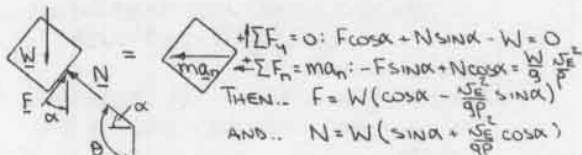 W = ma_n +↑ΣF_y = 0: Fcosα + Nsinα - W = 0
N ←+ ΣF_n = ma_n: -Fsinα + Ncosα = W/g v_E²/ρ
F α α THEN.. F = W(cosα - v_E²/gρ sinα)
θ AND.. N = W(sinα + v_E²/gρ cosα)